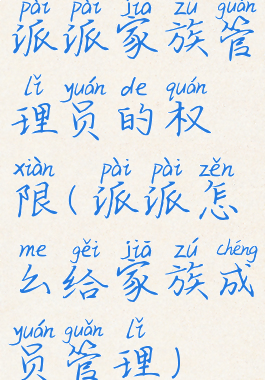 pài pài jiā zú guǎn
派派家族管
lǐ yuán de quán
理员的权
xiàn pài pài zěn
限(派派怎
me gěi jiā zú chéng
么给家族成
yuán guǎn lǐ
员管理)